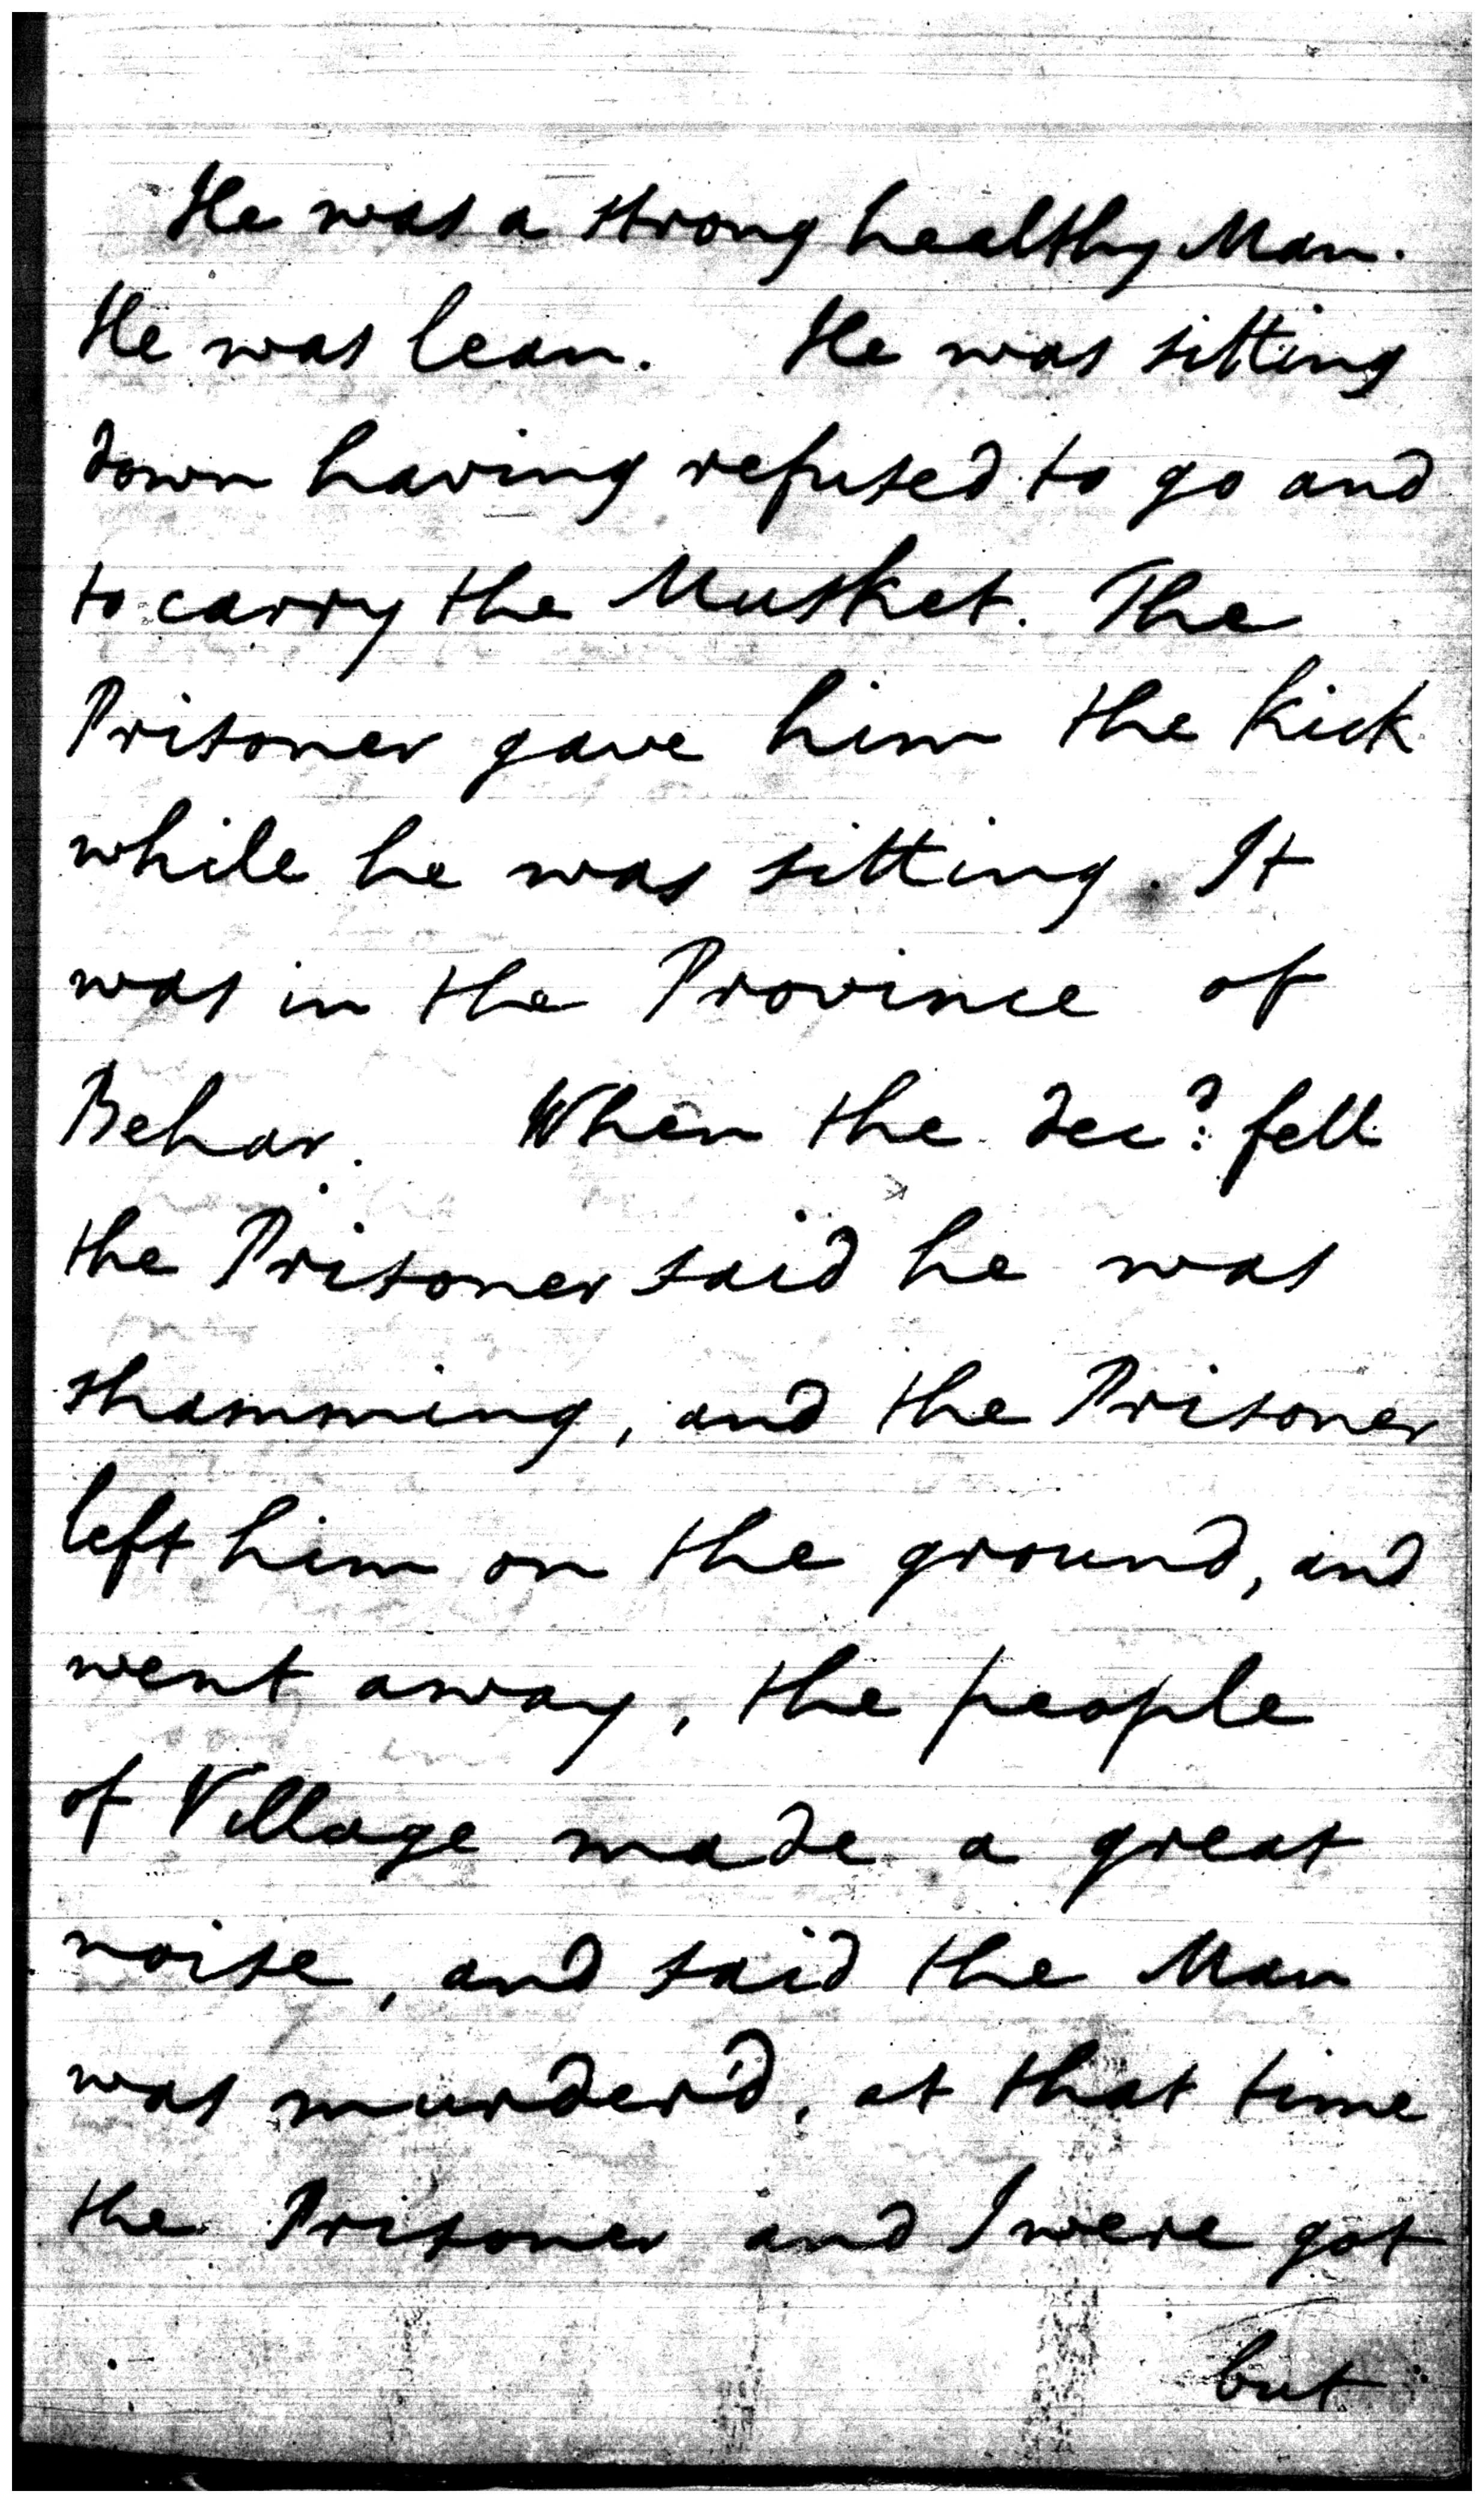 He was a strong healthy Man.
He was lean. He was sitting
down having refused to go and
to carry the Musket. The
Prisoner gave him the kick
while he was sitting. It
was in the Province of
Behar. When the dec.d fell
the Prisoner said he was
shamming, and the Prisoner
left him on the ground, and
went away, the people
of Village made a great
noise, and said the Man
was murder'd, at that time
the Prisoner and I were got
but